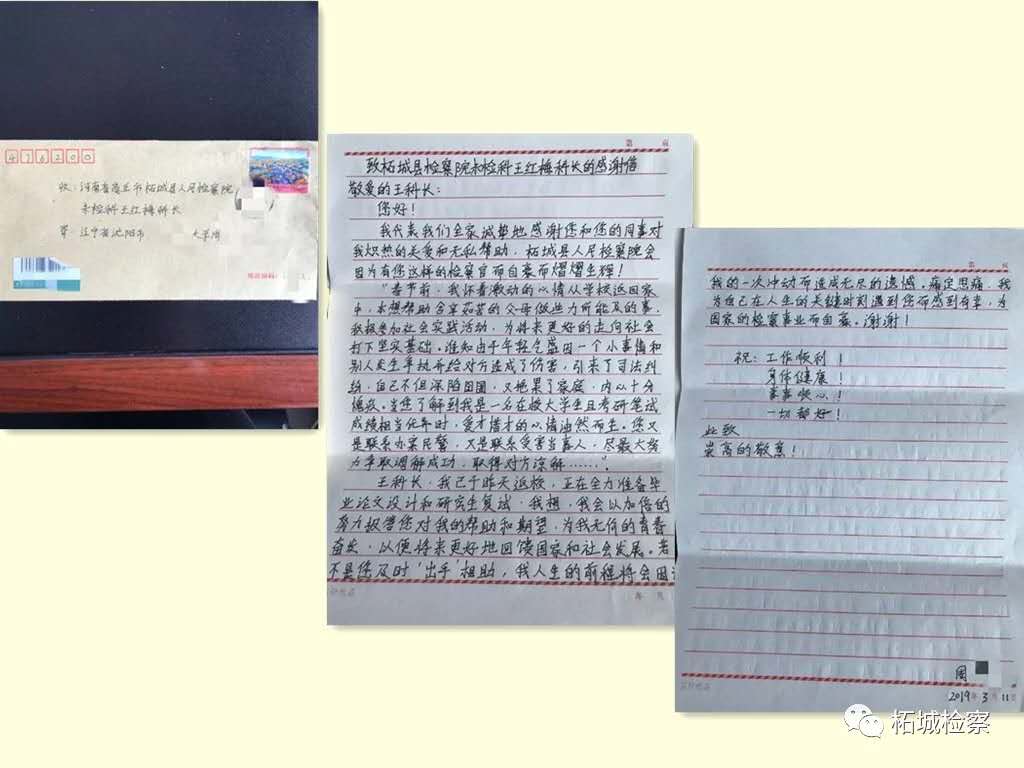 476200
收:河南省商丘市柘城县人民检察院
未检科王红梅科长
寄:辽宁省沈阳市 大学
邮政编码:
第 页
致柘城县检察院未检科王红梅科长的感谢信
敬爱的王科长:
您好!
我代表我们全家诚挚地感谢您和您的同事对
我炽热的关爱和无私帮助,柘城县人民检察院会
因为有您这样的检察官而自豪而熠熠生辉!
“春节前,我怀着激动的心情从学校返回家
中,本想帮助含辛茹苦的父母做些力所能及的事,
积极参加社会实践活动,为将来更好的走向社会
打下坚实基础。谁知由于年轻气盛因一个小事情和
别人发生争执并给对方造成了伤害,引来了司法纠
纷,自己不但深陷囹圄,又拖累了家庭,内心十分
愧疚。当您了解到我是一名在校大学生且考研笔试
成绩相当优异时,爱才惜才的心情油然而生。您又
是联系办案民警,又是联系受害当事人,尽最大努
力争取调解成功,取得对方谅解……”。
王科长,我已于昨天返校,正在全力准备毕
业论文设计和研究生复试,我想,我会以加倍的
努力报答您对我的帮助和期望,为我无价的青春
奋斗,以便将来更好地回馈国家和社会发展。若
不是您及时‘出手’相助,我人生的前程将会因
第 页
第 页
我的一次冲动而造成无尽的遗憾。痛定思痛,我
为自己在人生的关键时刻遇到您而感到有幸,为
国家的检察事业而自豪。谢谢!
祝:工作顺利!
身体健康!
事事顺心!
一切都好!
此致
崇高的敬意!
周
2019年3月11日
柘城检察